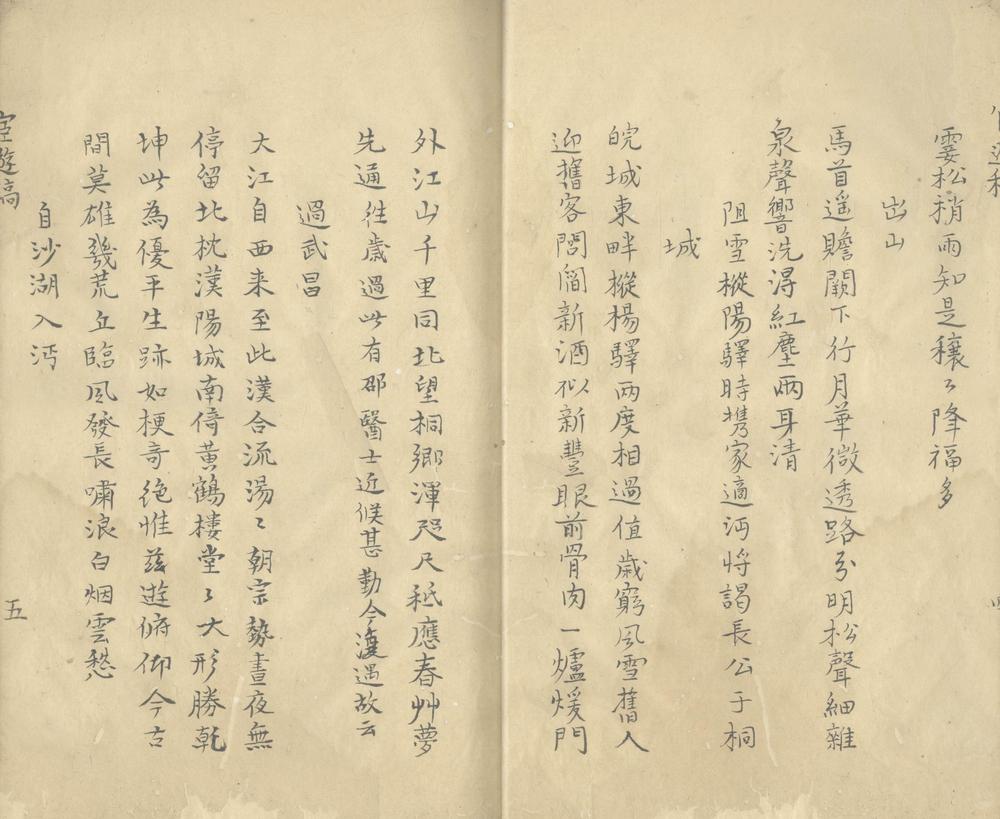 霎松梢雨知是穰〻降福多
出山
馬首遥瞻闕下行月華微透路分明松聲細雜
泉聲響洗淂紅塵兩耳清
阻雪樅陽驛時携家適沔将謁長公于桐
城
皖城東畔樅楊驛兩度相過值歲窮風雪舊人
迎舊客閤細新酒似新豐眼前骨肉一爐煖門
外江山千里同北望桐鄉渾咫尺秪應春艸夢
先通往歲過此有邵醫士近候甚勤今復遇故云
過武昌
大江自西来至此漢合流湯〻朝宗勢晝夜無
停留北枕漢陽城南倚黃鶴樓堂〻大形勝乾
坤此為優平生跡如梗奇絶惟茲遊俯仰今古
間莫雄幾荒丘臨風發長嘯浪白烟雲愁
自沙湖入沔
宦遊稿
五